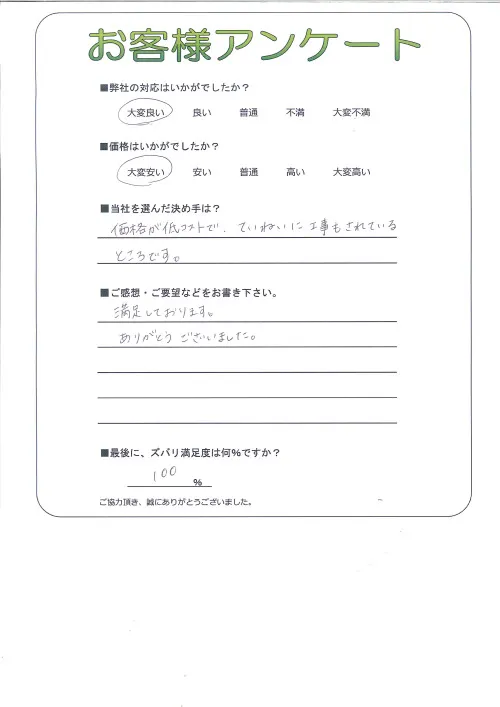 お客様アンケート
■弊社の対応はいかがでしたか？
大変良い 良い 普通 不満 大変不満
■価格はいかがでしたか？
大変安い 安い 普通 高い 大変高い
■当社を選んだ決め手は？
価格が低コストで、ていねいに工事もされている
ところです。
■ご感想・ご要望などをお書き下さい。
満足しております。
ありがとうございました。
■最後に、ズバリ満足度は何%ですか？
100 %
ご協力頂き、誠にありがとうございました。